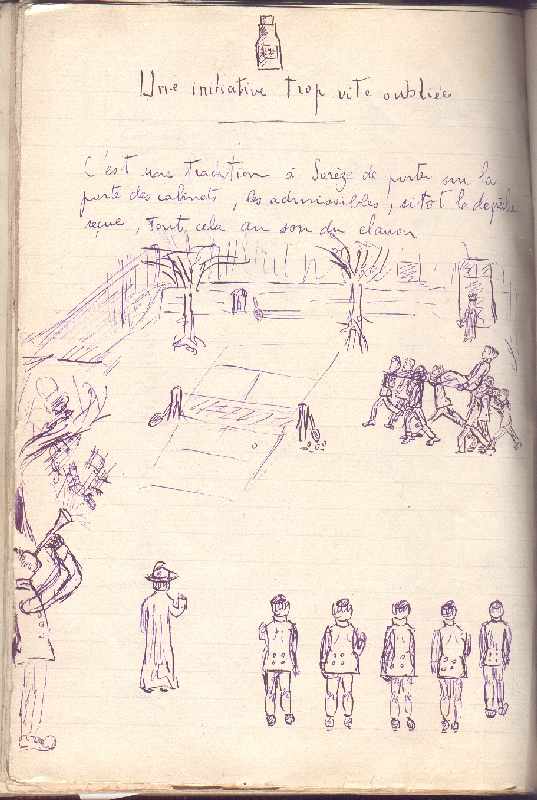 Une initiative trop vite oubliée
C'est une tradition à Sorèze de porter sur la
porte des cabinets, les admissibles, sitôt la dépêche
reçue, tout cela au son du clairon